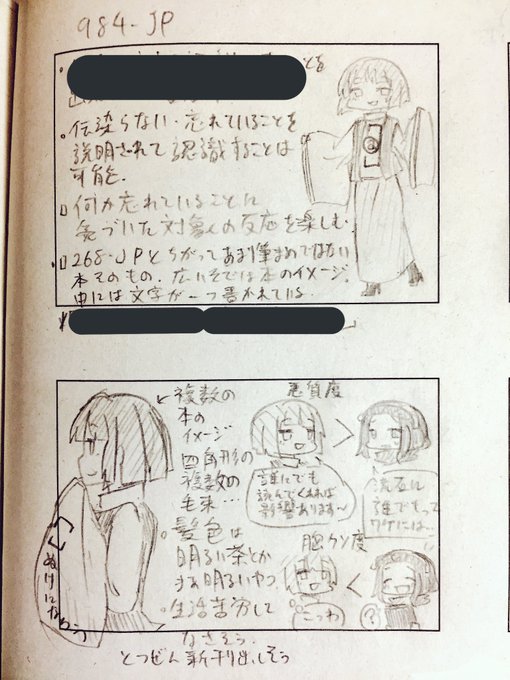 984-JP
とを
。伝染らない・忘れていることを
説明されて認識することは
可能.
□何か忘れていることに
気づいた対象の反応を楽しむ.
□268-JPとちがってあまり筆まめでない
本そのもの. 広いそでは本のイメージ.
中には文字が一つ書かれている.
複数の
本の
イメージ
四角形の
複数の
毛束…
。髪色は
明るい茶とか
明るいやつ.
。生活苦労して
なさそう.
とつぜん新刊出しそう
悪質度
>
誰にでも
読んでくれれば
影響あります〜
流石に
誰でもって
ワケには…
胆力ン度
<
こっわ
?
ぬけに